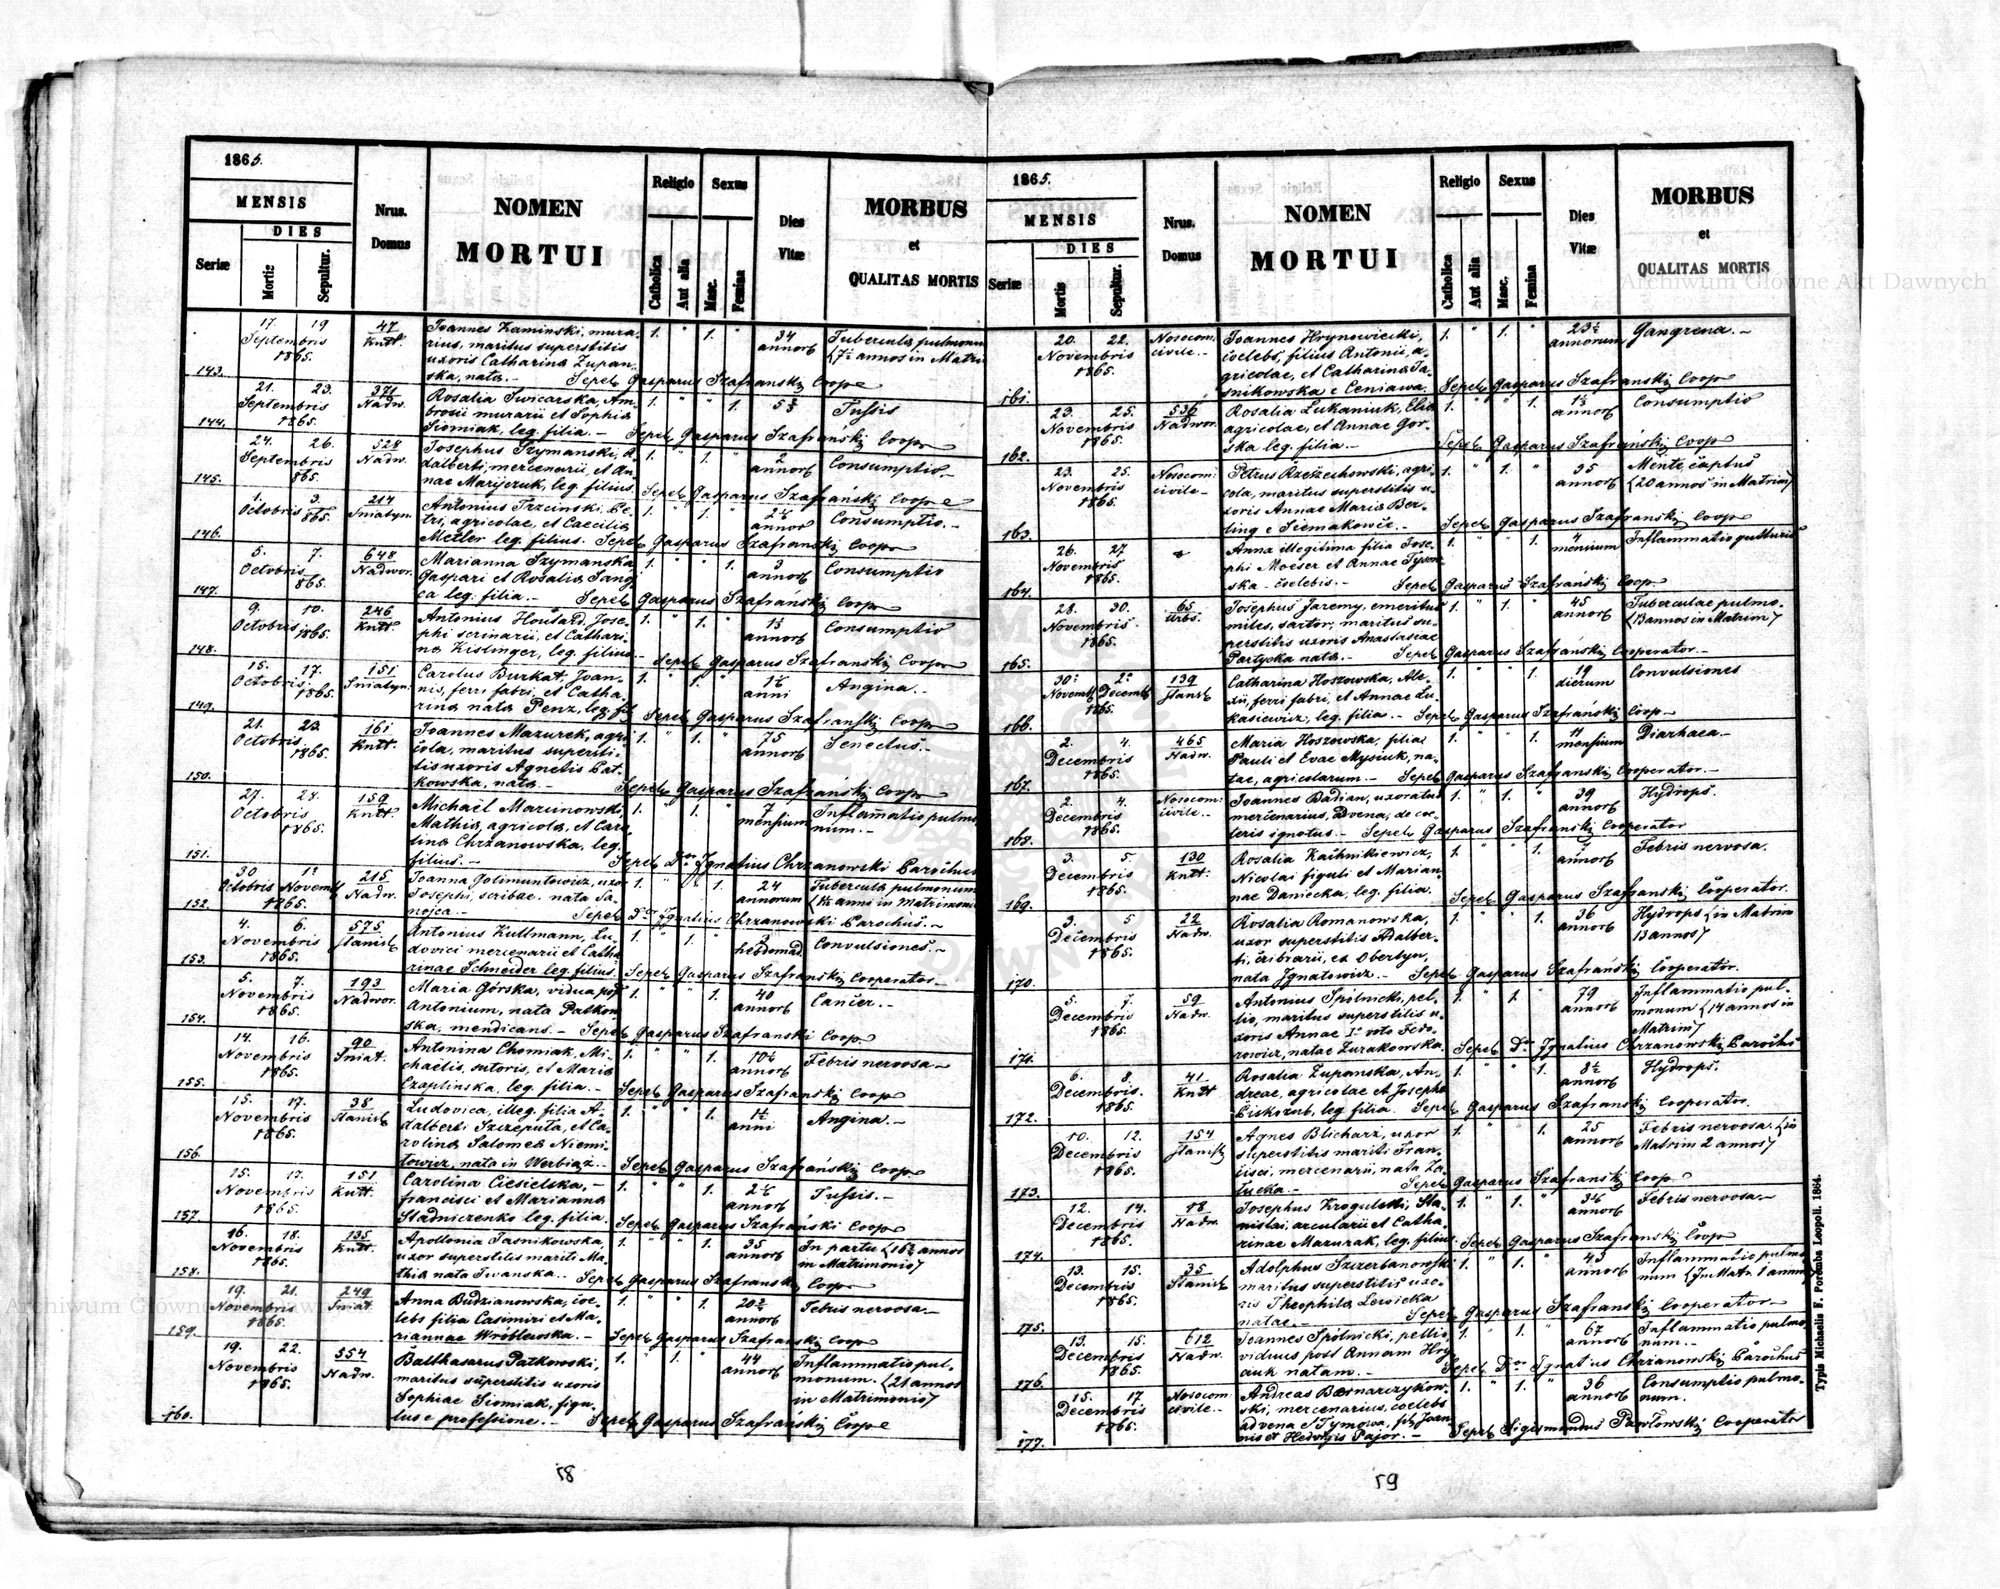 1865.
MENSIS
DIES
Seriæ
Mortis
Sepultur.
Nrus.
Domus
NOMEN
MORTUI
Religio
Catholica
Aut alia
Sexus
Masc.
Femina
Dies
Vitæ
MORBUS
et
QUALITAS MORTIS
143.
17. 19
Septembris
1865.
47
Kntt.
Joannes Kaminski, mura-
rius, maritus superstitis
uxoris Catharina Zupan-
ska, nata.— Sepel. Gasparus Szafranski Coop
1. " 1. "
34
annor
Tubercula pulmonum
144.
21. 23.
Septembris
1865.
371
Nadw.
Rosalia Swicarska, Am-
brosii murarii et Sophia
Siomiak, leg. filia.— Sepel. Gasparus Szafranski Coop
1. " " 1.
Tussis
145.
24. 26.
Septembris
1865.
528
Nadw.
Josephus Szymanski, A-
dalberti, mercenarii, et An-
nae Maryczuk, leg. filius.
Sepel. Gasparus Szafrański Coop
1. " 1. "
2
annor
Consumptio.
146.
1. 3.
Octobris 1865.
214
Sniatyn.
Antonius Trzcinski, Pe-
tri, agricolae, et Caecilia
Metler leg. filius. Sepel. Gasparus Szafranski Coop
1. " 1. "
annor
Consumptio.—
147.
5. 7.
Octobris 1865.
648
Nadwor.
Marianna Szymanska
Gaspari et Rosalia
leg. filia.— Sepel. Gasparus Szafrański Coop
1. " " 1.
3
annor
Consumptio
148.
9. 10.
Octobris 1865.
246
Kntt.
Antonius Jose-
phi scrinarii, et Cathari-
na Kislinger, leg. filius.—
Sepel. Gasparus Szafranski Coop
1. " 1. "
annor
Consumptio
149.
15. 17.
Octobris 1865.
151
Sniatyn.
Carolus Burkat, Joan-
nis, ferri fabri, et Catha-
rina nata Penz, leg. fil.
Sepel. Gasparus Szafranski Coop
1. " 1. "
anni
Angina.—
150.
21. 23.
Octobris 1865.
161
Kntt.
Joannes Mazurek, agri-
cola, maritus supersti-
tis uxoris Agnetis Pat-
kowska, nata.— Sepel. Gasparus Szafrański Coop
1. " 1. "
75
annor
Senectus.—
151.
27.
Octobris
1865.
159
Kntt.
Michael Marcinowski,
Mathia, agricola, et Caro-
lina Chrzanowska, leg.
filius.— Sepel. Dn Ignatius Chrzanowski Parochus
1. " 1. "
7
mensium
Inflamatio pulmo-
num.—
152.
30 1
Octobris Novemb
1865.
215
Nadw.
Joanna uxor
Josephi, scribae, nata
Sepel. Dn Ignatius Chrzanowski Parochus.—
1. " " 1.
24
annorum
Tubercula pulmonum
153.
4. 6.
Novembris
1865.
575
Stanisl.
Antonius Kuttmann, Lu-
dovici mercenarii et Catha-
rinae Schneider leg. filius. Sepel. Gasparus Szafranski Cooperator—
1. " 1. "
hebdomad.
Convulsiones.—
154.
5. 7.
Novembris
1865.
193
Nadwor.
Maria Górska, vidua post
Antonium, nata Patkow-
ska, mendicans.— Sepel. Gasparus Szafranski Coop
1. " " 1.
40
annor
Cancer.—
155.
14. 16.
Novembris
1865.
90
Sniat.
Antonina Chomiak, Mi-
chaelis, sutoris, et Maria
Czaplinska, leg. filia.— Sepel. Gasparus Szafranski Coop
1. " " 1.
annor
Febris nervosa—
156.
15. 17.
Novembris
1865.
38
Stanisl.
Ludovica, illeg. filia A-
dalberti Szczeputa, et Ca-
rolina Salomea Niemi-
towicz, nata in Werbiąż.— Sepel. Gasparus Szafrański Coop
1. " " 1.
anni
Angina.—
157.
15. 17.
Novembris
1865.
151
Kntt.
Carolina Ciesielska,—
Francisci et Marianna
Stadniczenko leg. filia. Sepel. Gasparus Szafrański Coop
1. " " 1.
annor
Tussis.—
158.
16. 18.
Novembris
1865.
135
Kntt.
Apollonia Jasnikowska
uxor superstitis mariti Ma-
thia nata Iwanska.— Sepel. Gasparus Szafranski Coop
1. " " 1.
35
annor
In partu
in Matrimonio
159.
19. 21.
Novembris
1865.
249
Sniat.
Anna Budzianowska, coe-
lebs filia Casimiri et Ma-
riannae Wróblewska.— Sepel. Gasparus Szafranski Coop
1. " " 1.
annor
Febris nervosa.—
160.
19. 22.
Novembris
1865.
554
Nadw.
Balthasarus Patkowski,
maritus superstitis uxoris
Sophiae Siomiak, figu-
lus e professione.— Sepel. Gasparus Szafrański Coop
1. " 1. "
44
annor
Inflammatio pul-
monum. (21 annos
in Matrimonio)
58
1865.
MENSIS
DIES
Seriæ
Mortis
Sepultur.
Nrus.
Domus
NOMEN
MORTUI
Religio
Catholica
Aut alia
Sexus
Masc.
Femina
Dies
Vitæ
MORBUS
et
QUALITAS MORTIS
161.
20. 22.
Novembris
1865.
Nosocom.
civile.—
Joannes Hrynowiecki,
coelebs, filius Antonii, a-
gricolae, et Catharina Ja-
snikowska e Ceniawa. Sepel. Gasparus Szafranski Coop
1. " 1. "
annorum
Gangrena.—
162.
23. 25.
Novembris
1865.
536
Nadwor.
Rosalia Lukaniuk, Elia
agricolae, et Annae Gor-
ska leg. filia.— Sepel. Gasparus Szafrański Coop
1. " " 1.
annor
Consumptio
163.
23. 25.
Novembris
1865.
Nosocom
civile—
Petrus agri-
cola, maritus superstitis u-
xoris Annae Maria Ber-
ling e Siemakowie.— Sepel. Gasparus Szafranski Coop
1. " 1. "
35
annor
Mente captus
(20 annos in Matrim)
164.
26. 27
Novembris
1865.
Anna illegitima filia Jose-
phi Moeser et Annae
ska coelebis.— Sepel. Gasparus Szafrański Coop
1. " " 1.
4
mensium
Inflammatio gutturis
165.
28. 30.
Novembris.
1865.
65
Urbs.
Josephus Jaremy, emeritus
miles, sartor, maritus su-
perstitis uxoris Anastasiae
Partycka nata.— Sepel. Gasparus Szafrański Cooperator.—
1. " 1. "
45
annor
Tuberculae pulmo.
(13 annos in Matrim)
166.
30. 2.
Novemb. Decemb.
1865.
139
Stanisl.
Catharina Hoszowska, Ale-
xii, ferri fabri, et Annae Lu-
kasiewicz, leg. filia.— Sepel. Gasparus Szafrański Coop—
1. " " 1.
19
dierum
Convulsiones
167.
2. 4.
Decembris
1865.
465
Nadw.
Maria Hoszowska, filia
Pauli et Evae Mysiuk, na-
tae, agricolarum.— Sepel. Gasparus Szafranski Cooperator.—
1. " " 1.
11
mensium
Diarhaea—
168.
2. 4.
Decembris
1865.
Nosocom:
civile.—
Joannes Badian, uxoratus
mercenarius, advena, de coe-
teris ignotus.— Sepel. Gasparus Szafranski Cooperator
1. " 1. "
39
annor
Hydrops.
169.
3. 5.
Decembris
1865.
130
Kntt.
Rosalia Kachnikiewicz,
Nicolai figuli et Marian-
nae Daniecka, leg. filia. Sepel. Gasparus Szafranski Cooperator.
1. " " 1.
annor
Febris nervosa.
170.
3. 5
Decembris
1865.
22
Nadw.
Rosalia Romanowska,
uxor superstitis Adalber-
ti, cribrarii, ex Obertyn,
nata Ignatowicz.— Sepel. Gasparus Szafrański Cooperator.
1. " " 1.
36
annor
Hydrops (in Matrim
13 annos)
171.
5. 7.
Decembris
1865.
59
Nadw.
Antonius Spólnicki, pel-
lio, maritus superstitis u-
xoris Annae 1º voto Fedo-
rowicz, natae Zurakowska. Sepel. Dn Ignatius Chrzanowski Parochus
1. " 1. "
79
annor
Inflammatio pul-
monum (14 annos in
Matrim)
172.
6. 8.
Decembris.
1865.
41
Kntt
Rosalia Zupanska, An-
dreae, agricolae et Josepha
Piskozub, leg. filia. Sepel. Gasparus Szafranski Cooperator.
1. " " 1.
8½
annor
Hydrops.
173.
10. 12.
Decembris
1865.
154
Stanisl.
Agnes Blicharz, uxor
superstitis mariti Fran-
cisci, mercenarii, nata Za-
łucka.— Sepel. Gasparus Szafranski Coop
1. " " 1.
25
annor
Febris nervosa. (in
Matrim 2 annos)
174.
12. 14.
Decembris
1865.
18
Nadw.
Josephus Krogulski, Sta-
nislai, arcularii et Catha-
rinae Mazurak, leg. filius. Sepel. Gasparus Szafranski Coop
1. " 1. "
annor
Febris nervosa.—
175.
13. 15.
Decembris
1865.
35
Stanisl.
Adolphus Szczerbanowski
maritus superstitis uxo-
ris Theophila Lewicka
natae.— Sepel. Gasparus Szafranski Cooperator—
1. " 1. "
43
annor
Inflammatio pulmo-
num (In Matr. 1 annum)
176.
13. 15.
Decembris
1865.
612
Nadw.
Joannes Spólnicki, pellio,
viduus post Annam Hry-
ciuk natam.— Sepel. Dn Ignatius Chrzanowski Parochus
1. " 1. "
67
annor
Inflammatio pulmo-
num.—
177.
15. 17
Decembris
1865.
Nosocom
civile.—
Andreas Bednarczykow-
ski, mercenarius, coelebs
advena e Tymowa, fil. Joan-
nis et Hedwigis Pajor.— Sepel. Sigismundus Pawłowski Cooperator
1. " 1. "
36
annor
Consumptio pulmo-
num.
59
Typis Michaelis F. Poremba Leopoli. 1864.
Archiwum Główne Akt Dawnych
Archiwum Główne Akt Dawnych